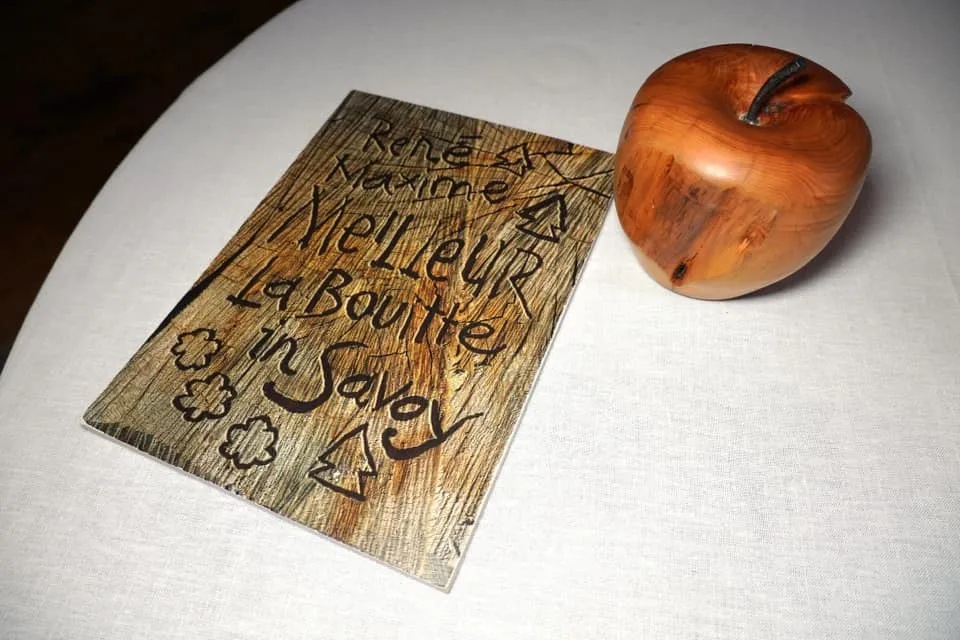 René
Maxime
MeiLLeuR
La Bouitte
in Savoy